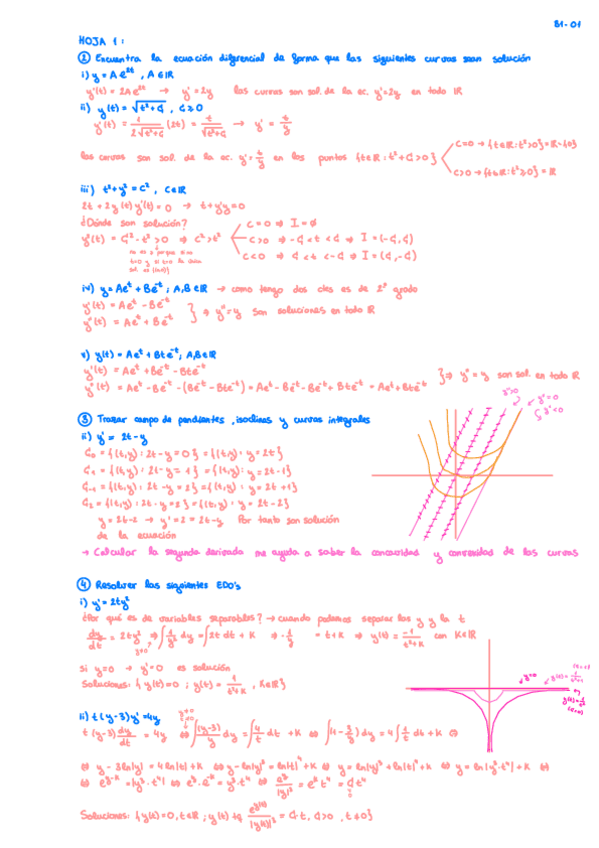 S1-01
HOJA 1:
② Encuentra la ecuación diferencial de forma que las siguientes curvas sean solución
i) y = A e^{2t}, A ∈ ℝ
y'(t) = 2A e^{2t} → y' = 2y las curvas son sol. de la ec. y' = 2y en todo ℝ
ii) y(t) = √(t²+C), C ≥ 0
y'(t) = 1/(2√(t²+C)) (2t) = t/√(t²+C) → y' = t/y
las curvas son sol. de la ec. y' = t/y en los puntos {t∈ℝ : t²+C>0}
C=0 → {t∈ℝ : t²>0} = ℝ-{0}
C>0 → {t∈ℝ : t²≥0} = ℝ
iii) t²+y² = C², C∈ℝ
2t + 2y(t)y'(t) = 0 → t + y'y = 0
¿Dónde son solución?
y²(t) = C² - t² > 0 ⇒ C² > t²
C = 0 ⇒ I = ∅
C > 0 ⇒ -C < t < C ⇒ I = (-C, C)
C < 0 ⇒ C < t < -C ⇒ I = (C, -C)
iv) y = Ae^t + Be^{-t}; A,B ∈ ℝ → como tengo dos ctes es de 2º grado
y'(t) = Ae^t - Be^{-t}
y''(t) = Ae^t + Be^{-t} } ⇒ y'' = y son soluciones en todo ℝ
v) y(t) = Ae^t + Bte^{-t}; A,B∈ℝ
y'(t) = Ae^t + Be^{-t} - Bte^{-t}
y''(t) = Ae^t - Be^{-t} - (Be^{-t} - Bte^{-t}) = Ae^t - Be^{-t} - Be^{-t} + Bte^{-t} = Ae^t + Bte^{-t} }⇒ y'' = y son sol. en todo ℝ
③ Trazar campo de pendientes, isoclinas y curvas integrales
y''>0
y''=0
y''<0
ii) y' = 2t - y
C₀ = {(t,y) : 2t - y = 0} = {(t,y) : y = 2t}
C₁ = {(t,y) : 2t - y = 1} = {(t,y) : y = 2t - 1}
C₋₁ = {(t,y) : 2t - y = -1} = {(t,y) : y = 2t + 1}
C₂ = {(t,y) : 2t - y = 2} = {(t,y) : y = 2t - 2}
y = 2t - 2 → y' = 2 = 2t - y Por tanto son solución
de la ecuación
→ Calcular la segunda derivada me ayuda a saber la concavidad y convexidad de las curvas
④ Resolver las siguientes EDO's
i) y' = 2ty²
¿Por qué es de variables separables? → cuando podemos separar las y y la t
dy/dt = 2ty² ⇒ ∫ 1/y² dy = ∫ 2t dt + K ⇒ -1/y = t² + K ⇒ y(t) = -1/(t²+K) con K∈ℝ
y≠0
si y = 0 → y' = 0 es solución
Soluciones: { y(t) = 0 ; y(t) = -1/(t²+K), K∈ℝ}
y=0
ii) t(y-3)y' = 4y
t(y-3) dy/dt = 4y ⇔ ∫ (y-3)/y dy = ∫ 4/t dt + K ⇔ ∫ (1 - 3/y) dy = 4∫ 1/t dt + K ⇔
⇔ y - 3ln|y| = 4ln|t| + K ⇔ y - ln|y|³ = ln|t|⁴ + K ⇔ y = ln|y|³ + ln|t|⁴ + K ⇔ y = ln|y³·t⁴| + K ⇔
⇔ e^{y-K} = |y³·t⁴| ⇔ e^y·e^{-K} = y³·t⁴ ⇔ e^y/|y|³ = e^K t⁴ = C t⁴
Soluciones: {y(t) = 0, t∈ℝ ; y(t) tq e^{y(t)}/|y(t)|³ = C·t, C>0, t≠0}